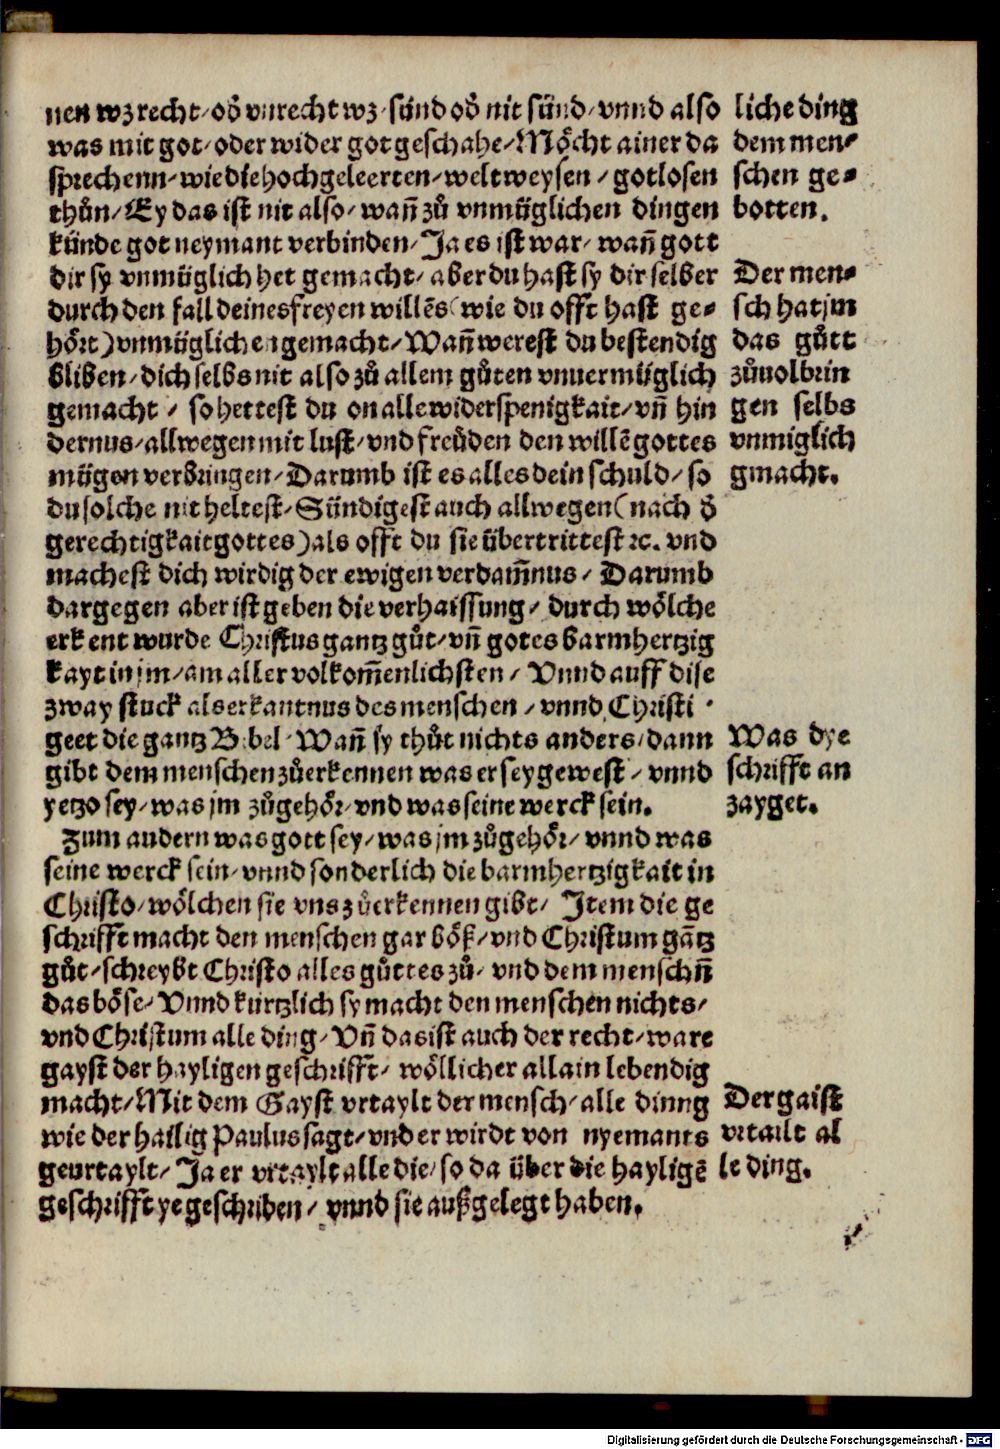 nen wz recht/ oð vnrecht wz/ sünd oð nit sünd/ vnnd also
was mit got/ oder wider got geschahe/ Möcht ainer da
sprechenn/ wie die hochgeleerten/ weltweysen/ gotlosen
thůn/ Ey das ist nit also/ wañ zů vnmüglichen dingen
künde got neymant verbinden/ Ja es ist war/ wañ gott
dir sy vnmüglich het gemacht/ aber du hast sy dir selber
durch den fall deines freyen willẽs (wie du offt hast ge-
hört) vnmüglichen gemacht/ Wañ werest du bestendig
bliben/ dich selbs nit also zů allem gůten vnuermüglich
gemacht/ so hettest du on alle widerspenigkait/ vñ hin
dernus/ allwegen mit lust/ vnd freüden den willẽ gottes
mügen verbringen/ Darumb ist es alles dein schuld/ so
du solche nit heltest/ Sündigest auch allwegen (nach ð
gerechtigkait gottes) als offt du sie übertrittest ꝛc. vnd
machest dich wirdig der ewigen verdam̃nus/ Darumb
dargegen aber ist geben die verhaissung/ durch wölche
erkent wurde Christus gantz gůt/ vñ gotes barmhertzig
kayt in jm/ am aller volkom̃enlichsten/ Vnnd auff dise
zway stuck als erkantnus des menschen/ vnnd Christi
geet die gantz Bibel/ Wañ sy thůt nichts anders/ dann
gibt dem menschen zů erkennen was er sey gewest/ vnnd
yetzo sey/ was jm zůgehör/ vnd was seine werck sein.
Zum andern was gott sey/ was jm zůgehör/ vnnd was
seine werck sein/ vnnd sonderlich die barmhertzigkait in
Christo/ wölchen sie vns zů erkennen gibt/ Item die ge
schrifft macht den menschen gar böß/ vnd Christum gãtz
gůt/ schreybt Christo alles gůttes zů/ vnd dem menschñ
das böse/ Vnnd kürtzlich sy macht den menschen nichts/
vnd Christum alle ding/ Vñ das ist auch der recht/ ware
gayst der hayligen geschrifft/ wöllicher allain lebendig
macht/ Mit dem Gayst vrtaylt der mensch/ alle dinng
wie der hailig Paulus sagt/ vnd er wirdt von nyemants
geurtaylt/ Ja er vrtaylt alle die/ so da über die hayligẽ
geschrifft ye geschriben/ vnnd sie außgelegt haben.
liche ding
dem men-
schen ge-
botten.
Der men-
sch hat jm
das gůtt
zůuolbrin
gen selbs
vnmiglich
gmacht.
Was dye
schrifft an
zayget.
Der gaist
vrtailt al
le ding.
Digitalisierung gefördert durch die Deutsche Forschungsgemeinschaft - DFG